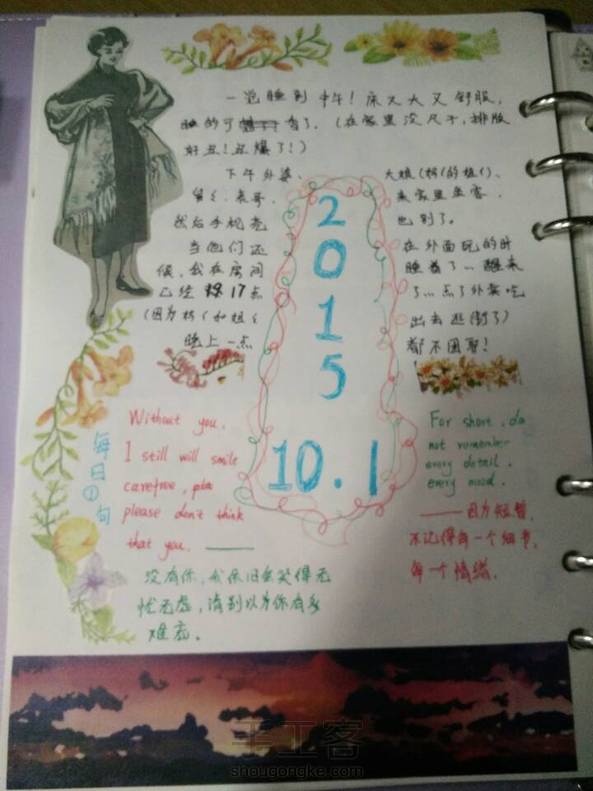 一觉睡到中午！床又大又舒服，
睡的可香了，（在家里没尺子，排版
好丑！丑爆了！）
下午外婆、
舅、表哥、
然后手机壳
当他们还
候，我在房间
已经 17点
（因为
晚上一点
大姐（
来家里坐客，
也到了。
在外面玩的时
睡着了…醒来
了…点了外卖吃
出去逛街了）
都不困耶！
2
0
1
5
10.1
每日①句
Without you,
I still will smile
carefree, pla
please don't think
that you. ——
没有你，我依旧会笑得无
忧无虑，请别以为你有多
难忘。
For short, do
not remember
every detail,
every mood.
——因为短暂，
不记得每一个细节，
每一个情绪．
手工客
shougongke.com